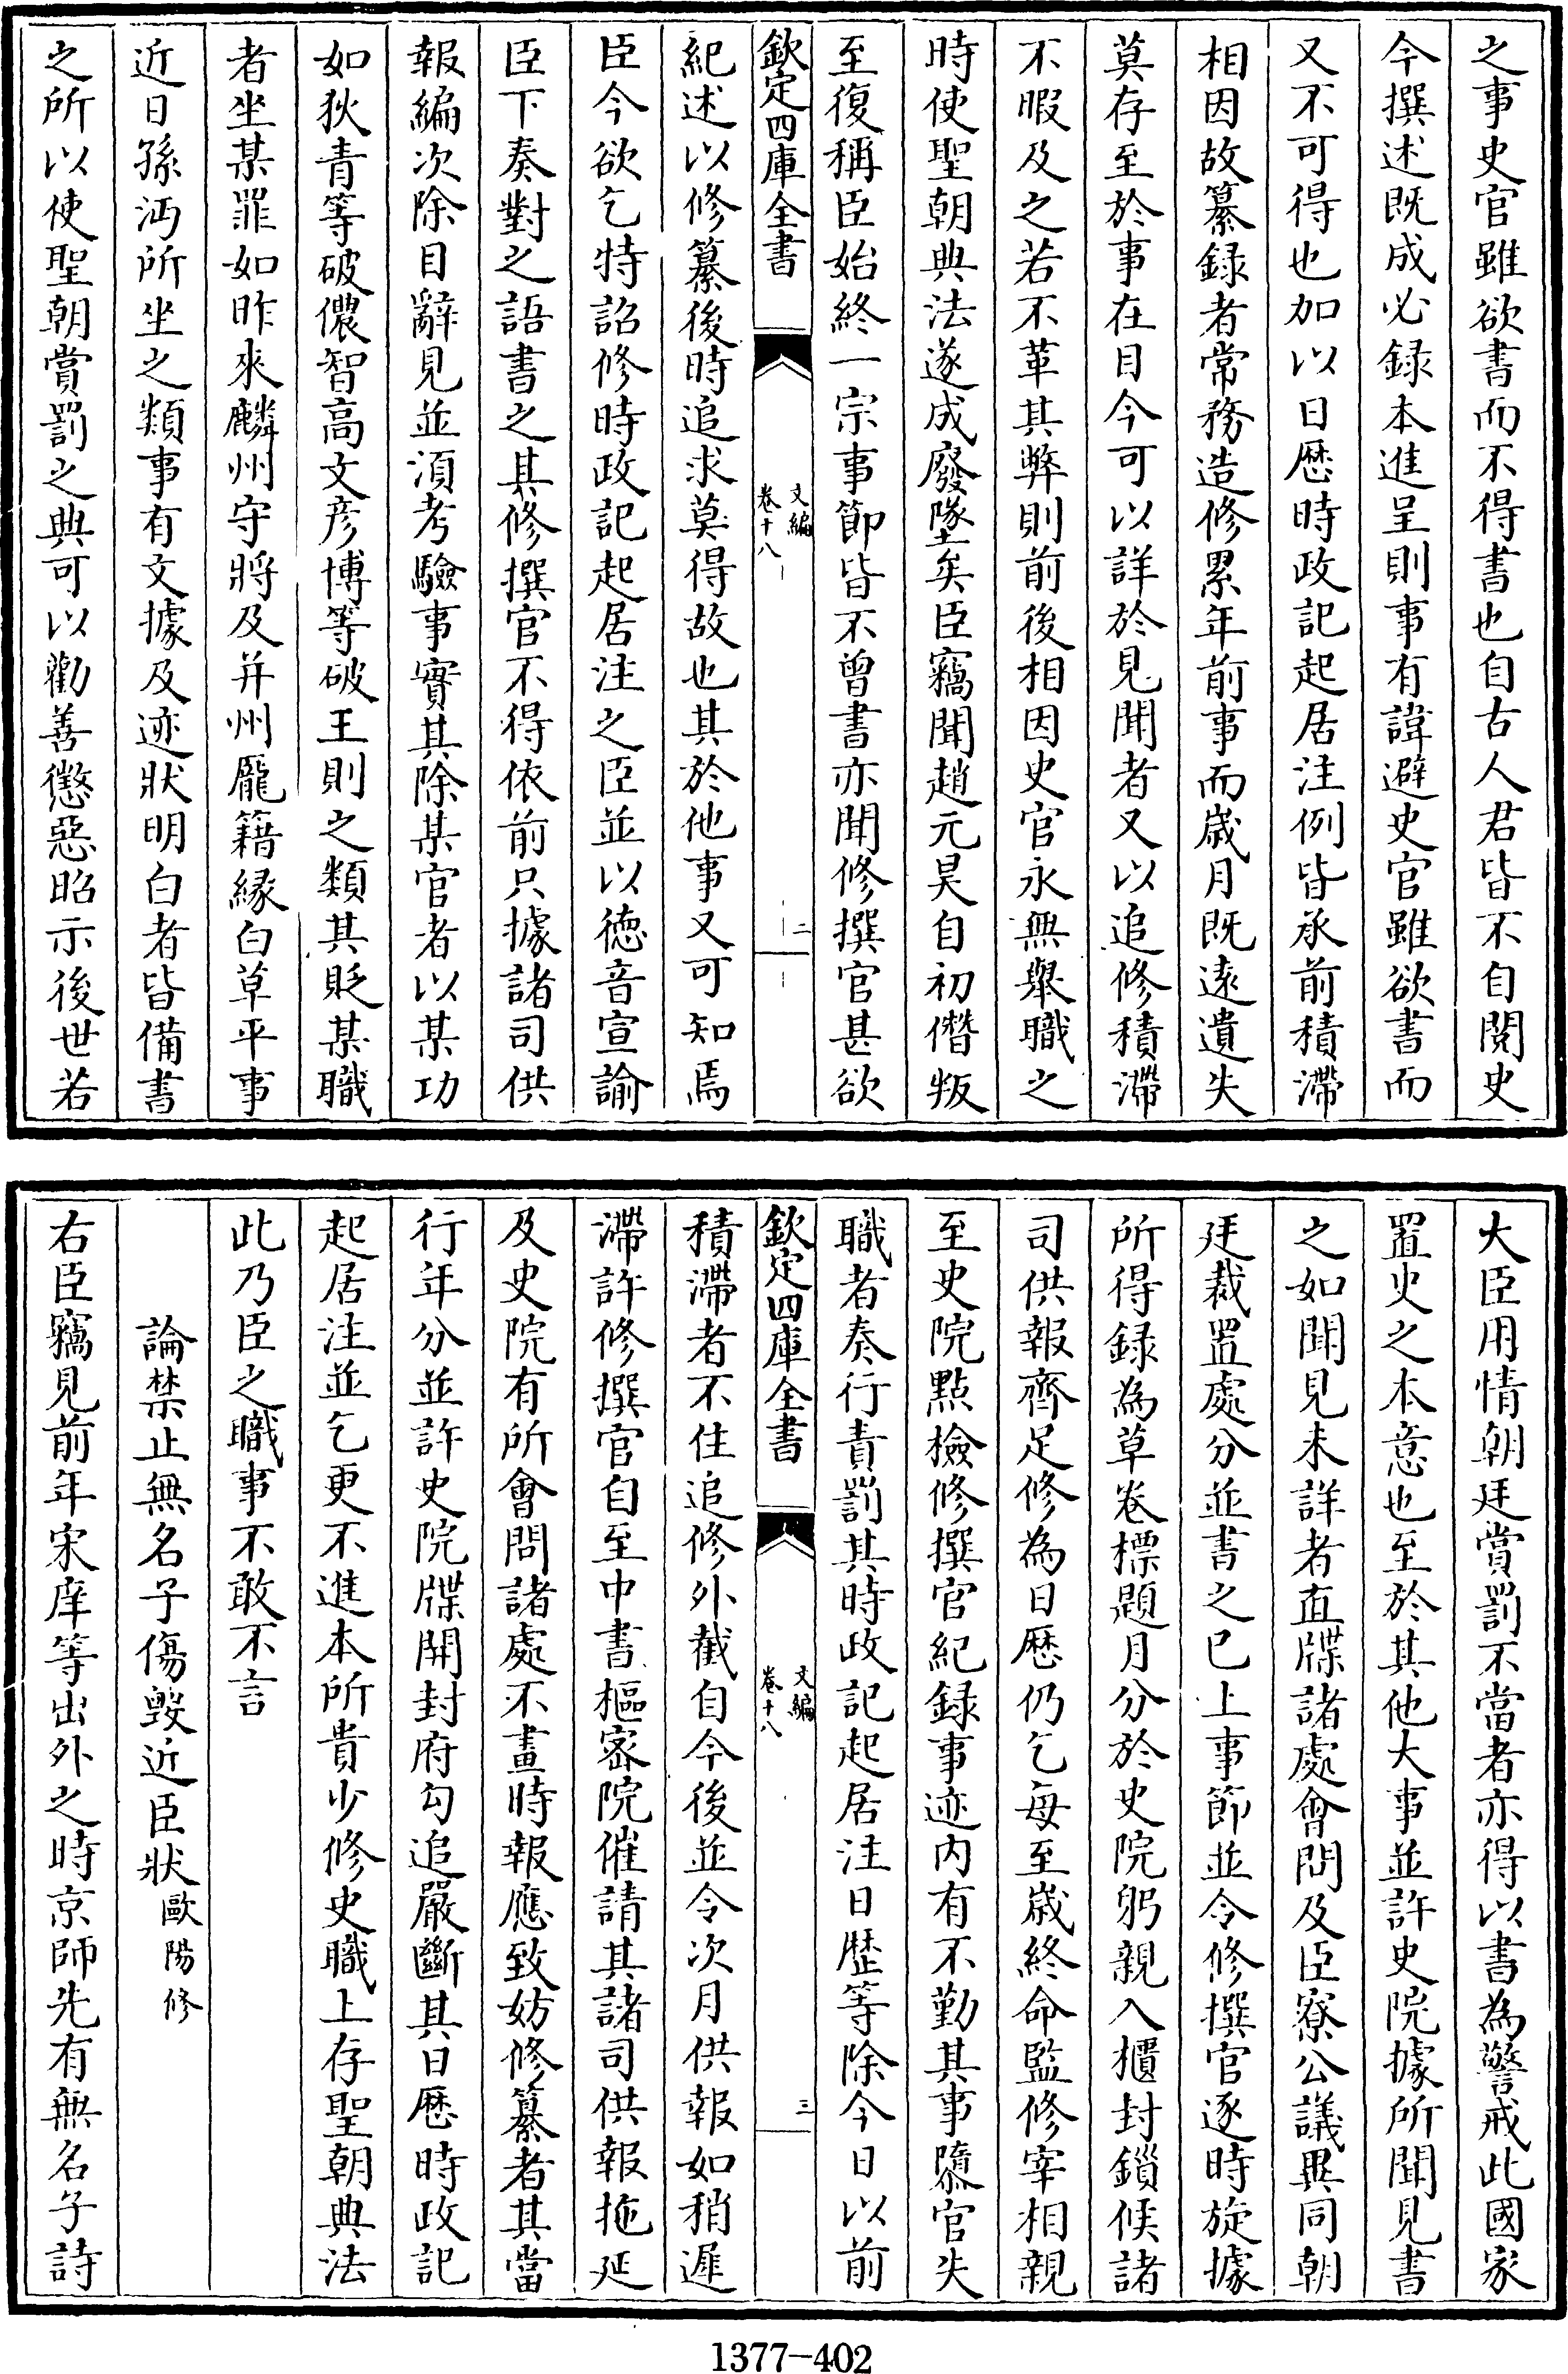 之事史官雖欲書而不得書也自古人君皆不自閱史
今撰述既成必録本進呈則事有諱避史官雖欲書而
又不可得也加以日歴時政記起居注例皆承前積滯
相因故纂録者常務造修累年前事而歲月既逺遺失
莫存至於事在目今可以詳於見聞者又以追修積滯
不暇及之若不革其弊則前後相因史官永無舉職之
時使聖朝典法遂成廢墜矣臣竊聞趙元昊自初僭叛
至復稱臣始終一宗事節皆不曾書亦聞修撰官甚欲
欽定四庫全書
文編
卷十八
二
紀述以修纂後時追求莫得故也其於他事又可知焉
臣今欲乞特詔修時政記起居注之臣並以徳音宣諭
臣下奏對之語書之其修撰官不得依前只據諸司供
報編次除目辭見並湏考驗事實其除某官者以某功
如狄青等破儂智高文彦博等破王則之類其貶某職
者坐某罪如昨來麟州守將及并州龎籍縁白草平事
近日孫沔所坐之類事有文據及迹狀明白者皆備書
之所以使聖朝賞罰之典可以勸善懲惡昭示後世若
大臣用情朝廷賞罰不當者亦得以書為警戒此國家
置史之本意也至於其他大事並許史院據所聞見書
之如聞見未詳者直牒諸處會問及臣寮公議異同朝
廷裁置處分並書之已上事節並令修撰官逐時旋據
所得録為草卷標題月分於史院躬親入櫃封鎖候諸
司供報齊足修為日歴仍乞每至歲終命監修宰相親
至史院點檢修撰官紀録事迹内有不勤其事隳官失
職者奏行責罰其時政記起居注日歴等除今日以前
欽定四庫全書
文編
卷十八
三
積滯者不住追修外截自今後並令次月供報如稍遲
滯許修撰官自至中書樞密院催請其諸司供報拖延
及史院有所會問諸處不畫時報應致妨修纂者其當
行年分並許史院牒開封府勾追嚴斷其日歴時政記
起居注並乞更不進本所貴少修史職上存聖朝典法
此乃臣之職事不敢不言
論禁止無名子傷毀近臣狀 歐陽修
右臣竊見前年宋庠等出外之時京師先有無名子詩
1377-402